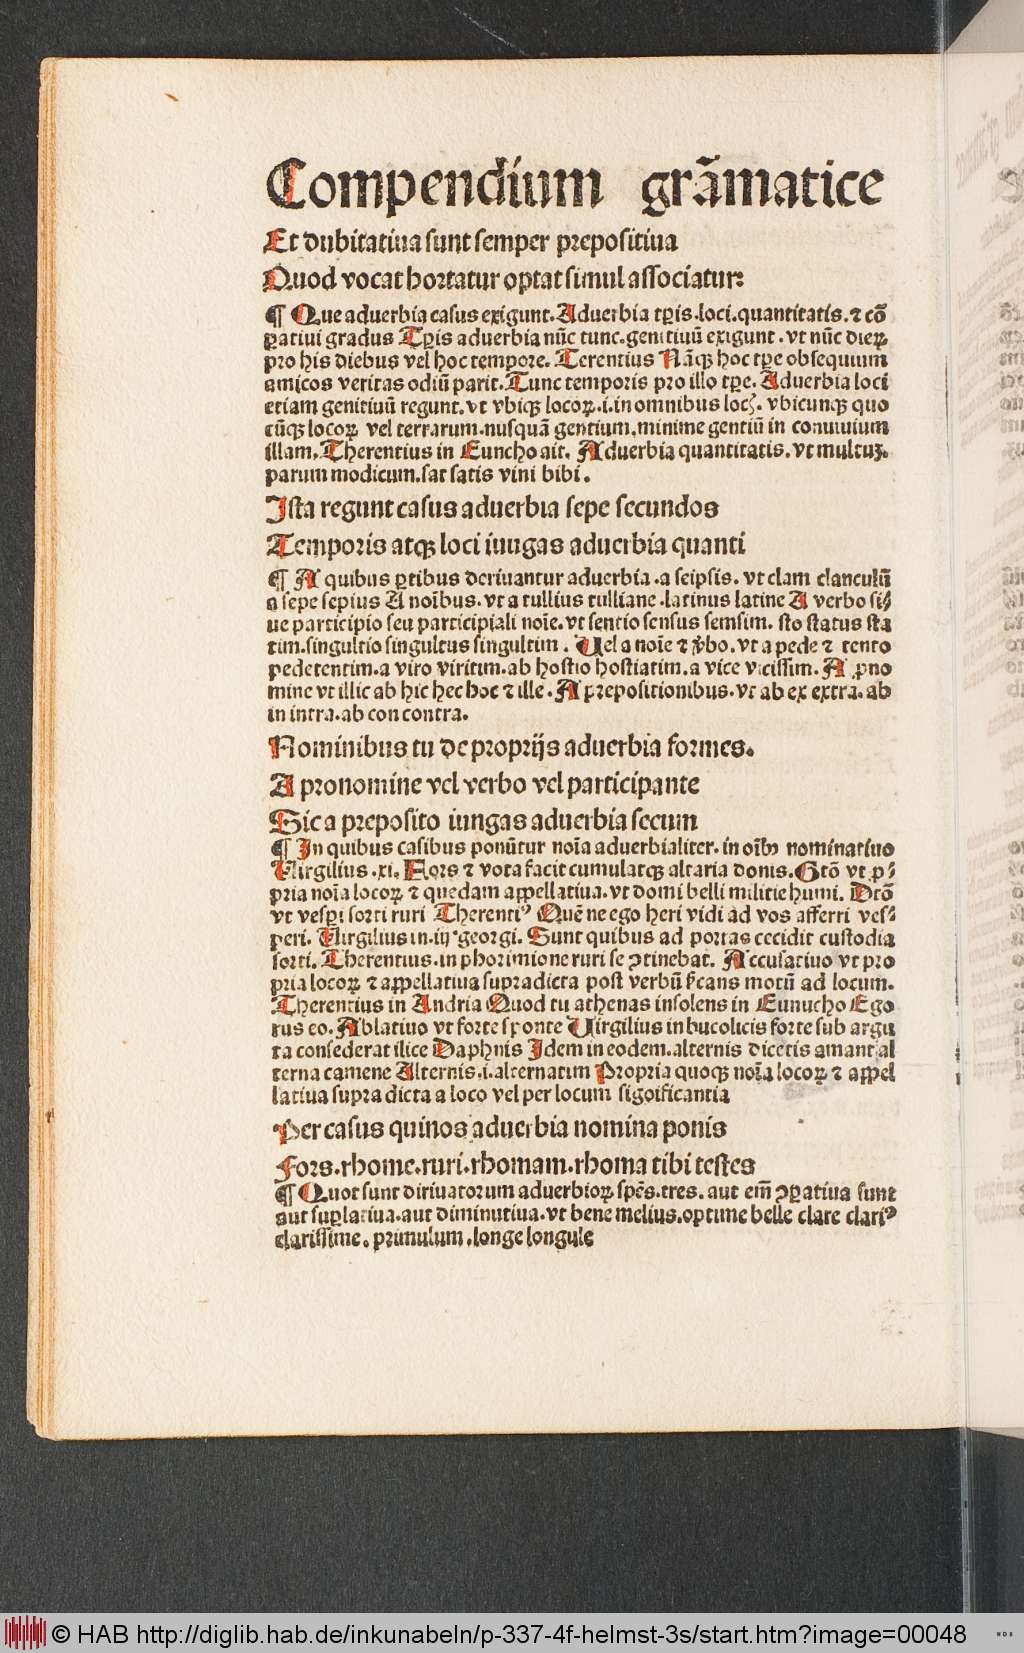 Compendium grãmatice
Et dubitatiua sunt semper prepositiua
Quod vocat hortatur optat simul associatur:
¶ Que aduerbia casus exigunt. Aduerbia tꝑis.loci.quantitatis.⁊ cõ
ꝑatiui gradus Tꝑis aduerbia nũc tunc.genitiuũ exigunt.vt nũc dieꝝ
pro his diebus vel hoc tempore. Terentius Nãqꝫ hoc tꝑe obsequium
amicos veritas odiũ parit.Tunc temporis pro illo tꝑe. Aduerbia loci
etiam genitiuũ regunt.vt vbiqꝫ locoꝝ.i.in omnibus locꝭ. vbicunqꝫ quo
cũqꝫ locoꝝ vel terrarum.nusquã gentium.minime gentiũ in conuiuium
illam. Therentius in Euncho ait. Aduerbia quantitatis. vt multuꝫ.
parum modicum.sat satis vini bibi.
Ista regunt casus aduerbia sepe secundos
Temporis atqꝫ loci iungas aduerbia quanti
¶ A quibus ꝑtibus deriuantur aduerbia.a seipsis. vt clam clanculũ
a sepe sepius A noĩbus.vt a tullius tulliane.latinus latine A verbo si⸗
ue participio seu participiali noĩe.vt sentio sensus semsim. sto status sta
tim.singultio singultus singultim. Uel a noĩe ⁊ v̾bo.vt a pede ⁊ tento
pedetentim.a viro viritim.ab hostio hostiatim.a vice vicissim. A ꝓno
mine vt illic ab hic hec hoc ⁊ ille. A prepositionibus.vt ab ex extra. ab
in intra.ab con contra.
Nominibus tu de proprijs aduerbia formes.
A pronomine vel verbo vel participante
Sic a preposito iungas aduerbia secum
¶ In quibus casibus ponũtur noĩa aduerbialiter. in oĩbꝰ nominatiuo
Virgilius.xi. Fors ⁊ vota facit cumulatqꝫ altaria donis. Gtõ vt ꝓ⸗
pria noĩa locoꝝ ⁊ quedam appellatiua.vt domi belli militie humi. Dtõ
vt vesꝑi sorti ruri Therentiꝰ Quẽ ne ego heri vidi ad vos afferri ves⸗
peri. Virgilius in.iij.georgi. Sunt quibus ad portas cecidit custodia
sorti. Therentius.in phorimione ruri se ꝯtinebat. Accusatiuo vt pro
pria locoꝝ ⁊ appellatiua supradicta post verbũ sͥcans motũ ad locum.
Therentius in Andria Quod tu athenas insolens in Eunucho Ego
rus eo. Ablatiuo vt forte sponte Uirgilius in bucolicis forte sub argu
ta consederat ilice Daphnis Idem in eodem.alternis dicetis amant al
terna camene Alternis.i.alternatim Propria quoqꝫ noĩa locoꝝ ⁊ appel
latiua supra dicta a loco vel per locum sigoificantia
Per casus quinos aduerbia nomina ponis
Fors.rhome.ruri.rhomam.rhoma tibi testes
¶ Quot sunt diriuatorum aduerbioꝝ spẽs.tres. aut eim̃ ꝯꝑatiua sunt
aut suꝑlatiua.aut diminutiua.vt bene melius.optime belle clare clariꝰ
clarissime. primulum.longe longule
© HAB http://diglib.hab.de/inkunabeln/p-337-4f-helmst-3s/start.htm?image=00048